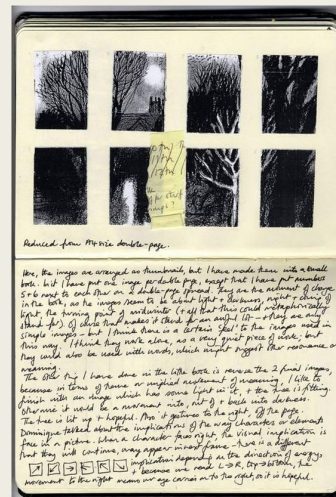 Reduced from A4 size double-page.
Here, the images are arranged as thumbnails, but I have made them into a small
book. With I have put one image per double page, except that I have put numbers
5+6 next to each other on a double-page spread. They are the moment of change
in the book, as the images seem to be about light + darkness, night + coming of
light, the turning point of midwinter (+ all that this could metaphorically
stand for). Of course that makes it stand for an awful lot – they are only
simple images – but I think there is a certain 'spell' to the images used in
this way. I think they work alone, as a very quiet piece of work; but
they could also be used with words, which might suggest the resonance or
meaning.
The other thing I have done in the little book is reverse the 2 final images,
because in terms of narrative or implied movement of meaning, I like to
finish with an image which has some light in it, + the tree is fitting.
Otherwise it would be a movement into out of + back into darkness.
The tree is lit up + hopeful. Also it gestures to the right, off the page.
Dominique talked about the implications of the way characters or elements
face in a picture. When a character faces right, the visual implication is
that they will continue, may appear in next frame – there is a different
implication depending on the direction of energy:
+ because we read L → R, top → bottom, the
movement to the right means our eye carries on to the right, or it is hopeful.